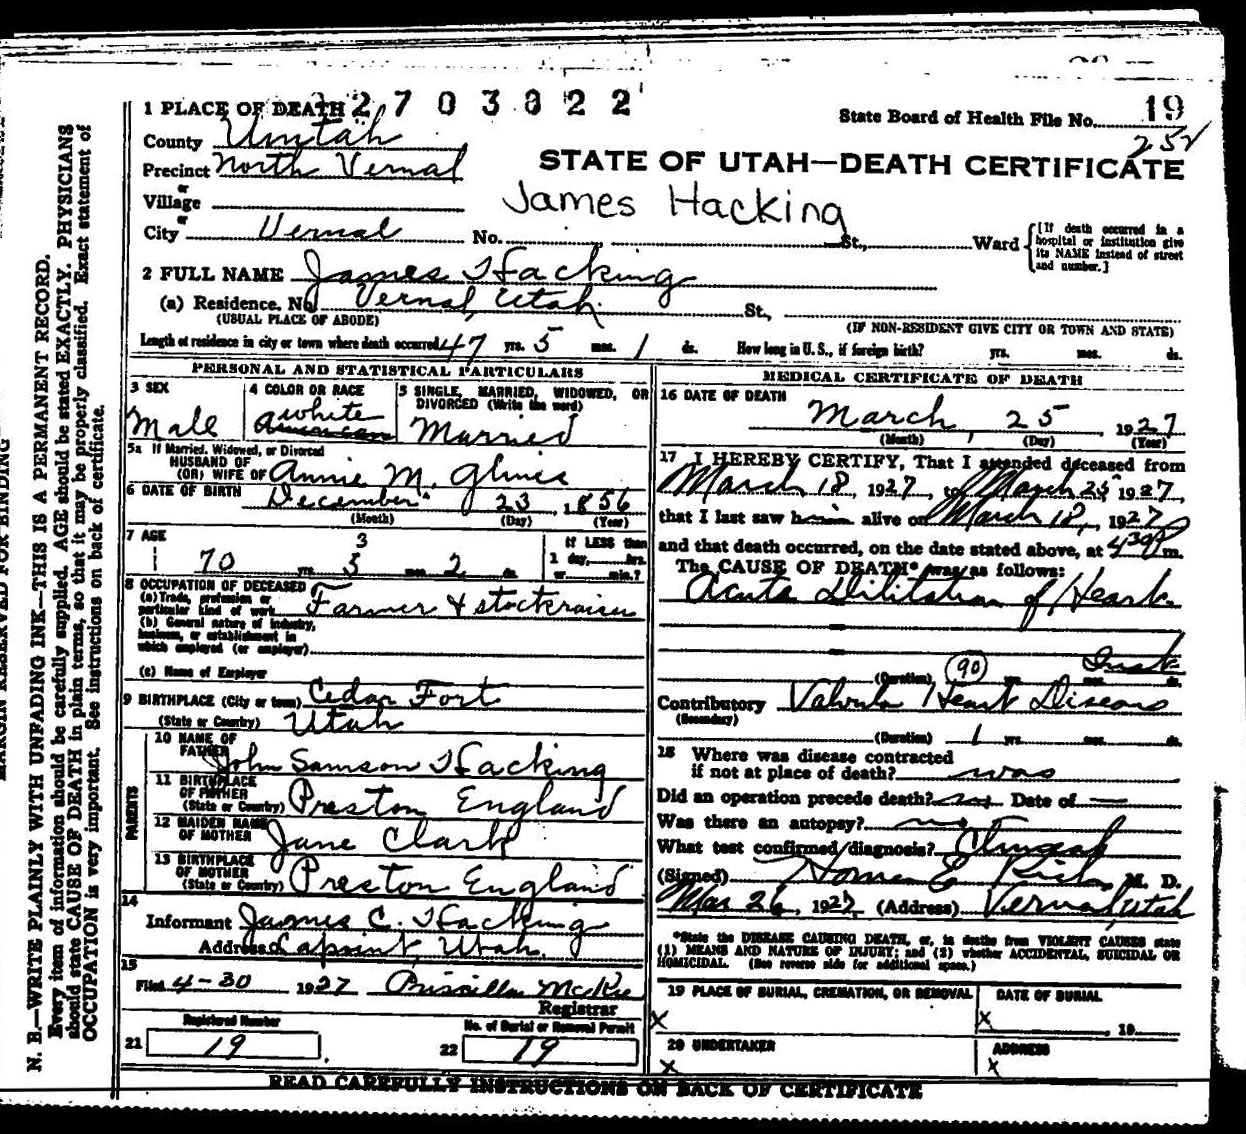 1 PLACE OF DEATH 2703022
State Board of Health File No. 19
252
County Uintah
STATE OF UTAH—DEATH CERTIFICATE
Precinct North Vernal
or
Village
James Hacking
or
City Vernal No. St., Ward {[If death occurred in a hospital or institution give its NAME instead of street and number.]
2 FULL NAME James Hacking
(a) Residence. No. Vernal, Utah. St.,
(USUAL PLACE OF ABODE) (IF NON-RESIDENT GIVE CITY OR TOWN AND STATE)
Length of residence in city or town where death occurred 47 yrs. 5 mos. 1 ds. How long in U. S., if foreign birth? yrs. mos. ds.
PERSONAL AND STATISTICAL PARTICULARS
3 SEX
Male
4 COLOR OR RACE
white
american
5 SINGLE, MARRIED, WIDOWED, OR DIVORCED (Write the word)
Married
5a If Married, Widowed, or Divorced
HUSBAND OF
(OR) WIFE OF Annie M. Glines
6 DATE OF BIRTH December 23, 1856
(Month) (Day) (Year)
7 AGE
3
70 yrs. 5 mos. 2 ds.
If LESS than 1 day, hrs. or min.?
8 OCCUPATION OF DECEASED
(a) Trade, profession or particular kind of work Farmer & stockraiser
(b) General nature of industry, business, or establishment in which employed (or employer)
(c) Name of Employer
9 BIRTHPLACE (City or town) Cedar Fort
(State or Country) Utah
PARENTS
10 NAME OF FATHER John Samson Hacking
11 BIRTHPLACE OF FATHER
(State or Country) Preston England
12 MAIDEN NAME OF MOTHER Jane Clark
13 BIRTHPLACE OF MOTHER
(State or Country) Preston England
14
Informant James C. Hacking
Address Lapoint, Utah.
15
Filed 4-30 1927 Priscilla McKee
Registrar
Registered Number
21 19
No. of Burial or Removal Permit
22 19
MEDICAL CERTIFICATE OF DEATH
16 DATE OF DEATH
March, 25 1927
(Month) (Day) (Year)
17 I HEREBY CERTIFY, That I attended deceased from
March 18, 1927, to March 25 1927,
that I last saw him alive on March 18, 1927
and that death occurred, on the date stated above, at 430P m.
The CAUSE OF DEATH* was as follows:
Acute Dilitation of Heart
90 Inst
(Duration) yrs. mos. ds.
Contributory Valvular Heart Disease
(Secondary)
(Duration) 1 yrs. mos. ds.
18 Where was disease contracted
if not at place of death? was
Did an operation precede death? no Date of —
Was there an autopsy? no
What test confirmed diagnosis? Clinical
(Signed) Homer E Rich M. D.
Mar 26, 1927 (Address) Vernal, Utah
*State the DISEASE CAUSING DEATH, or, in deaths from VIOLENT CAUSES state
(1) MEANS AND NATURE OF INJURY; and (2) whether ACCIDENTAL, SUICIDAL OR
HOMICIDAL. (See reverse side for additional space.)
19 PLACE OF BURIAL, CREMATION, OR REMOVAL
x
DATE OF BURIAL
x , 19
20 UNDERTAKER
x
ADDRESS
x
READ CAREFULLY INSTRUCTIONS ON BACK OF CERTIFICATE
MARGIN RESERVED FOR BINDING
N. B.—WRITE PLAINLY WITH UNFADING INK—THIS IS A PERMANENT RECORD.
Every item of information should be carefully supplied. AGE should be stated EXACTLY. PHYSICIANS
should state CAUSE OF DEATH in plain terms, so that it may be properly classified. Exact statement of
OCCUPATION is very important. See instructions on back of certificate.